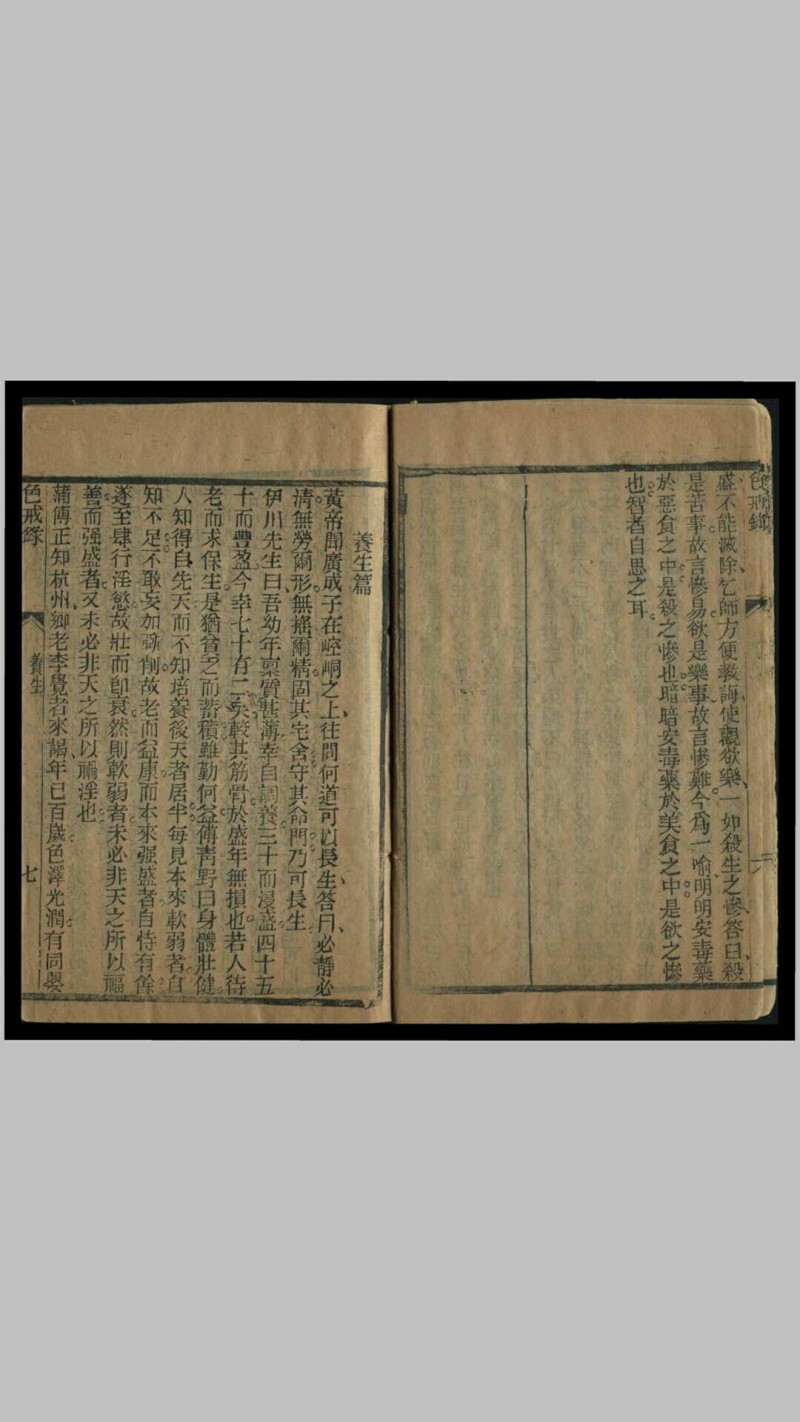 盛不能滅除乞師方便教誨使觀欲樂一如殺生之慘答曰殺
是苦事故言慘易欲是樂事故言慘難今爲一喻明明安毒藥
於惡食之中是殺之慘也暗暗安毒藥於美食之中是欲之慘
也智者自思之耳
養生篇
黃帝聞廣成子在崆峒之上往問何道可以長生答曰必靜必
清無勞爾形無搖爾精固其宅舍守其命門乃可長生
伊川先生曰吾幼年稟質甚薄幸自調養三十而漫盛四十五
十而豐盈今幸七十有二矣較其筋骨於盛年無損也若人待
老而求保生是猶貧乏而蓄積雖勤何益傅靑野曰身體壯健
人知得自先天而不知培養後天者居半每見本來軟弱者自
知不足不敢妄加斵削故老而益康而本來强盛者自恃有餘
遂至肆行淫慾故壯而卽衰然則軟弱者未必非天之所以福
善而强盛者又未必非天之所以禍淫也
蒲傳正知杭州鄉老李覺者來謁年已百歲色澤光潤有同嬰
色戒錄
養生
七